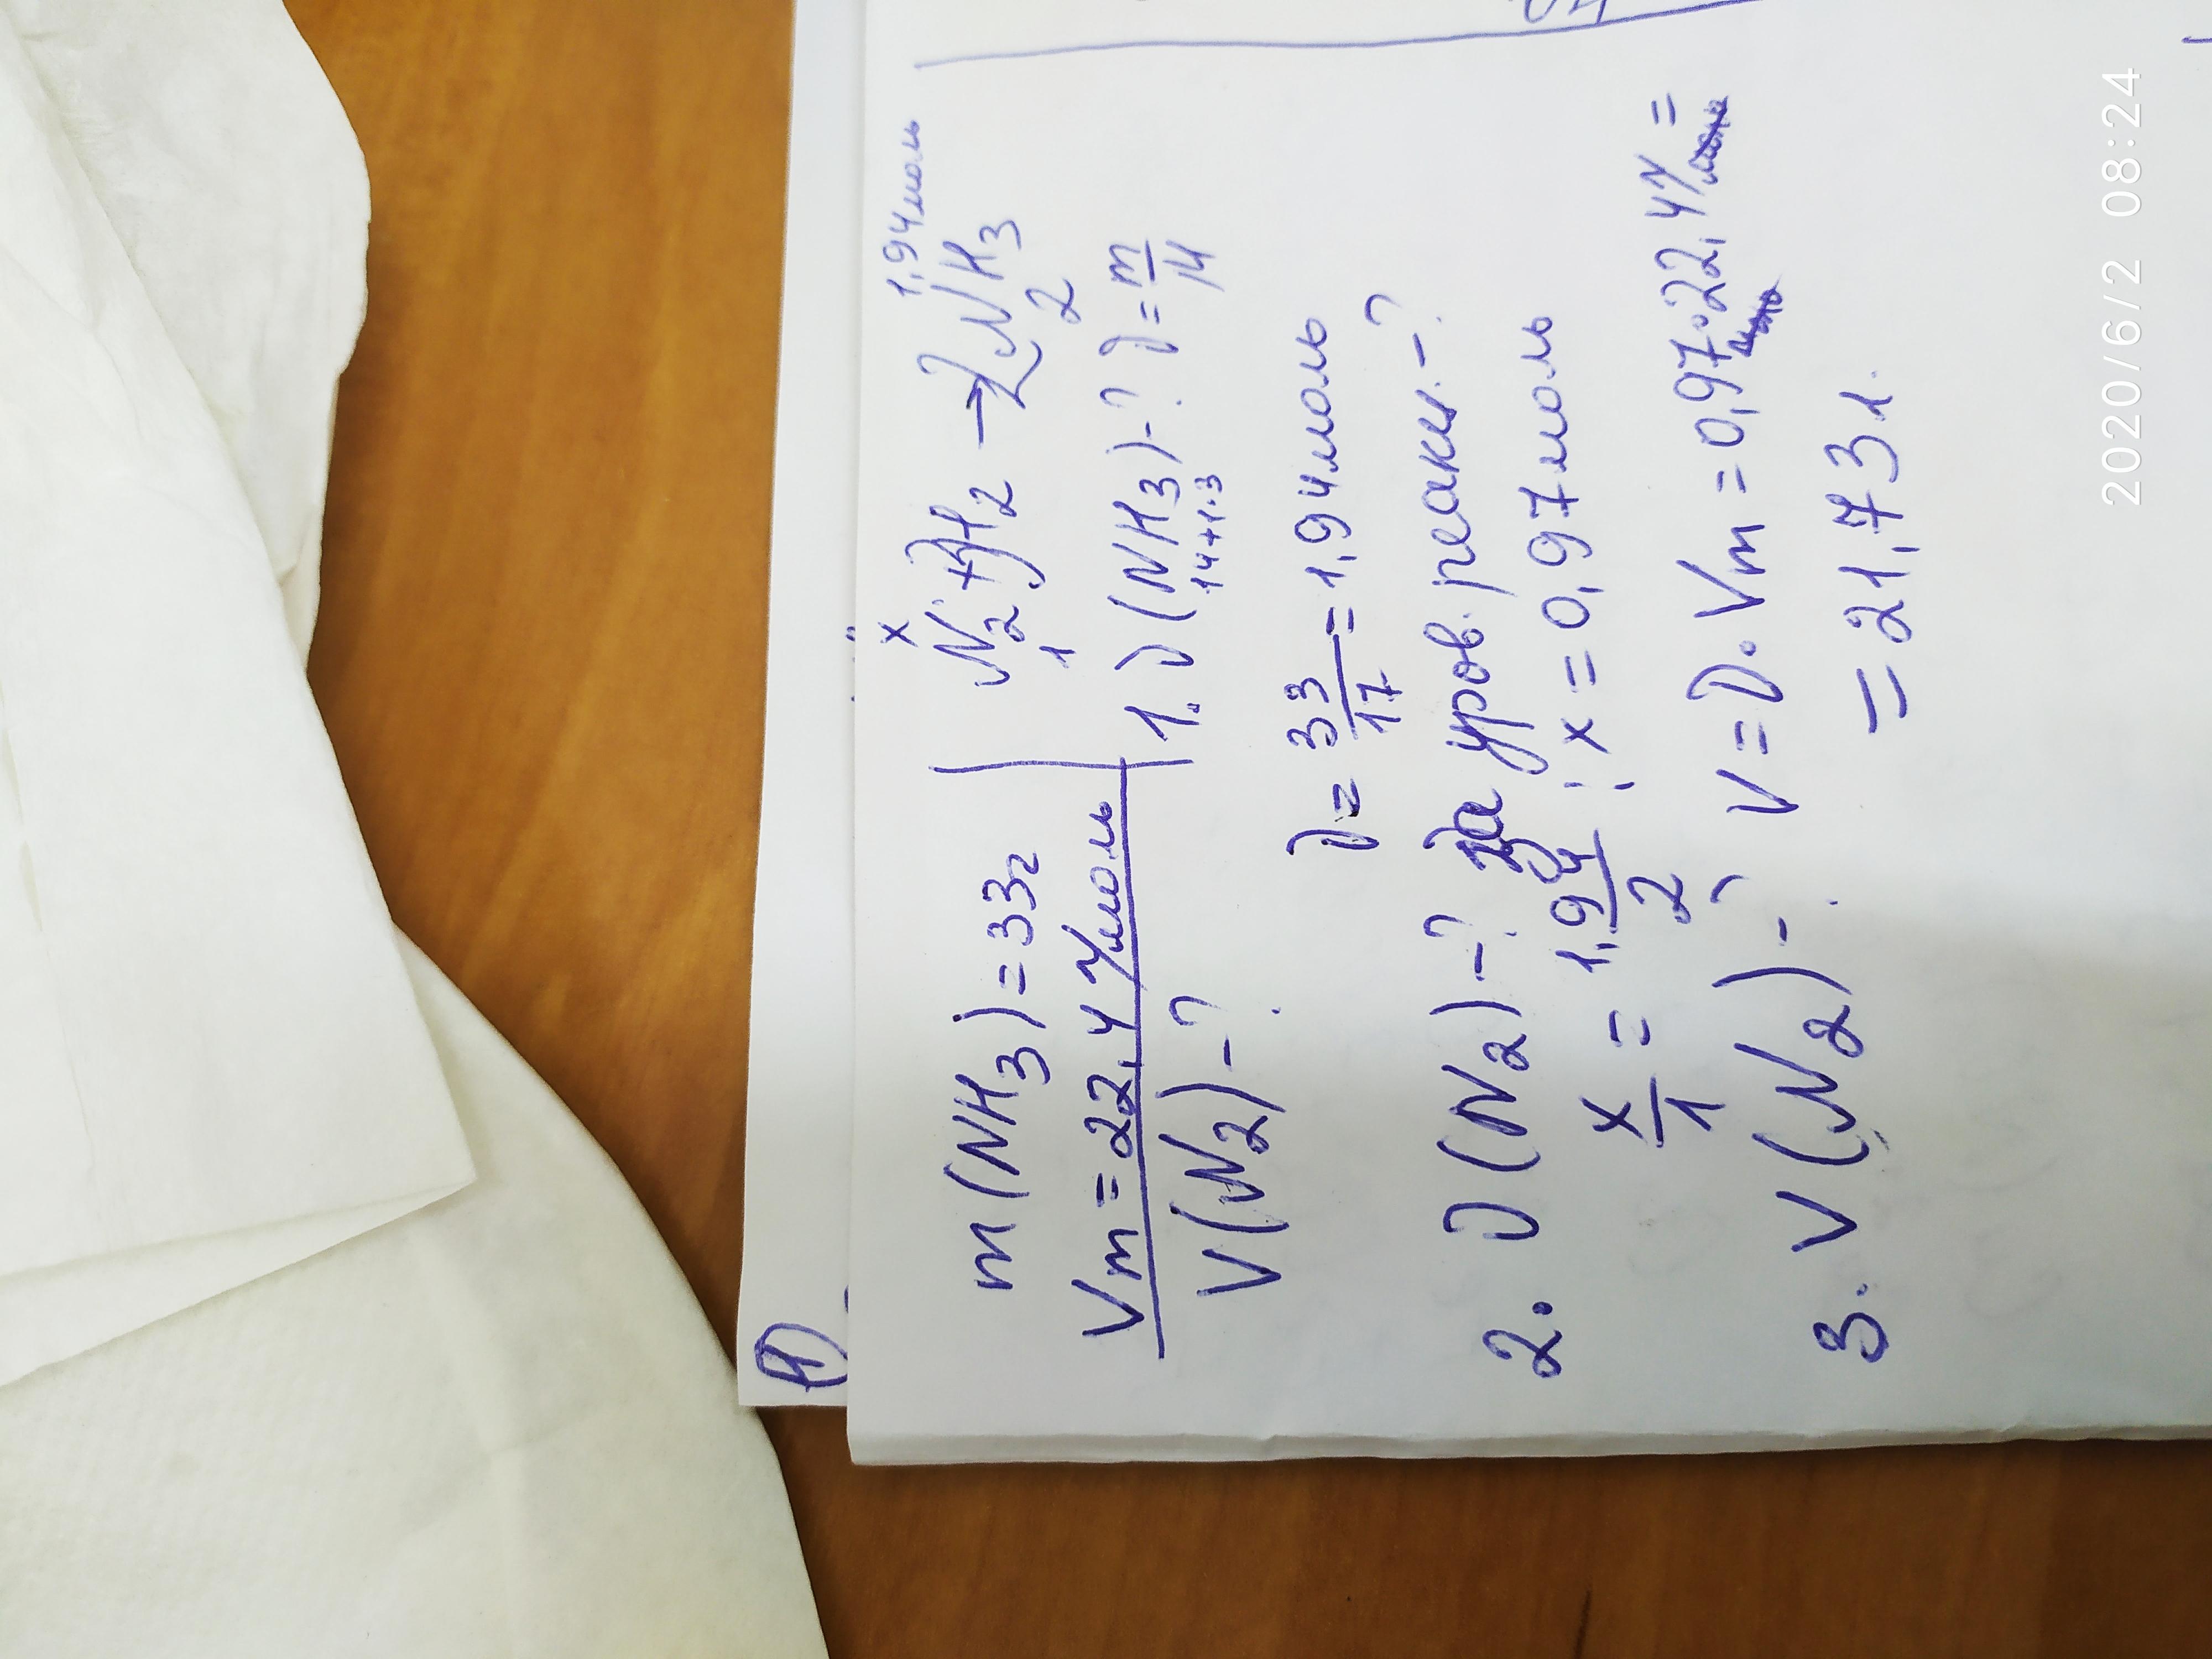 1
m(NH3)=33г
Vm=22,4 л/моль
V(N2)-?
x 1,94моль
N2+3H2→2NH3
1 2
1. ν(NH3)-? ν=m/M
14+1·3
ν=33/17=1,94моль
2. ν(N2)-? За уров. реакц.-?
x/1=1,94/2; x=0,97моль
3. V(N2)-? V=ν·Vm=0,97·22,4л/моль=
моль
=21,73л.
2020/6/2 08:24